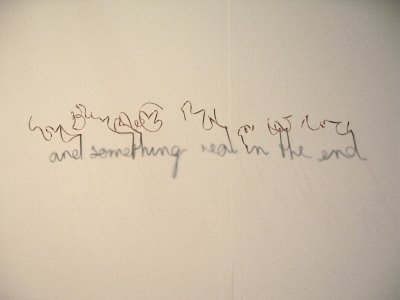 and something real in the end